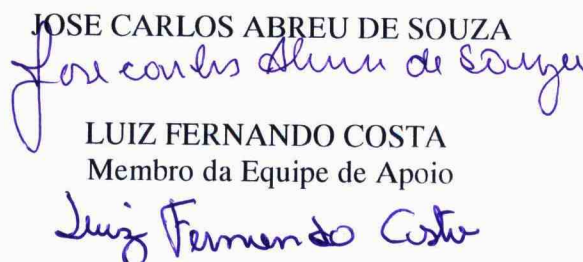 JOSE CARLOS ABREU DE SOUZA
Jose carlos Abreu de Souza
LUIZ FERNANDO COSTA
Membro da Equipe de Apoio
Luiz Fernando Costa